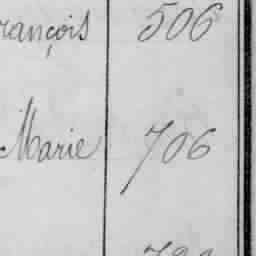 rançois 506
Marie 706